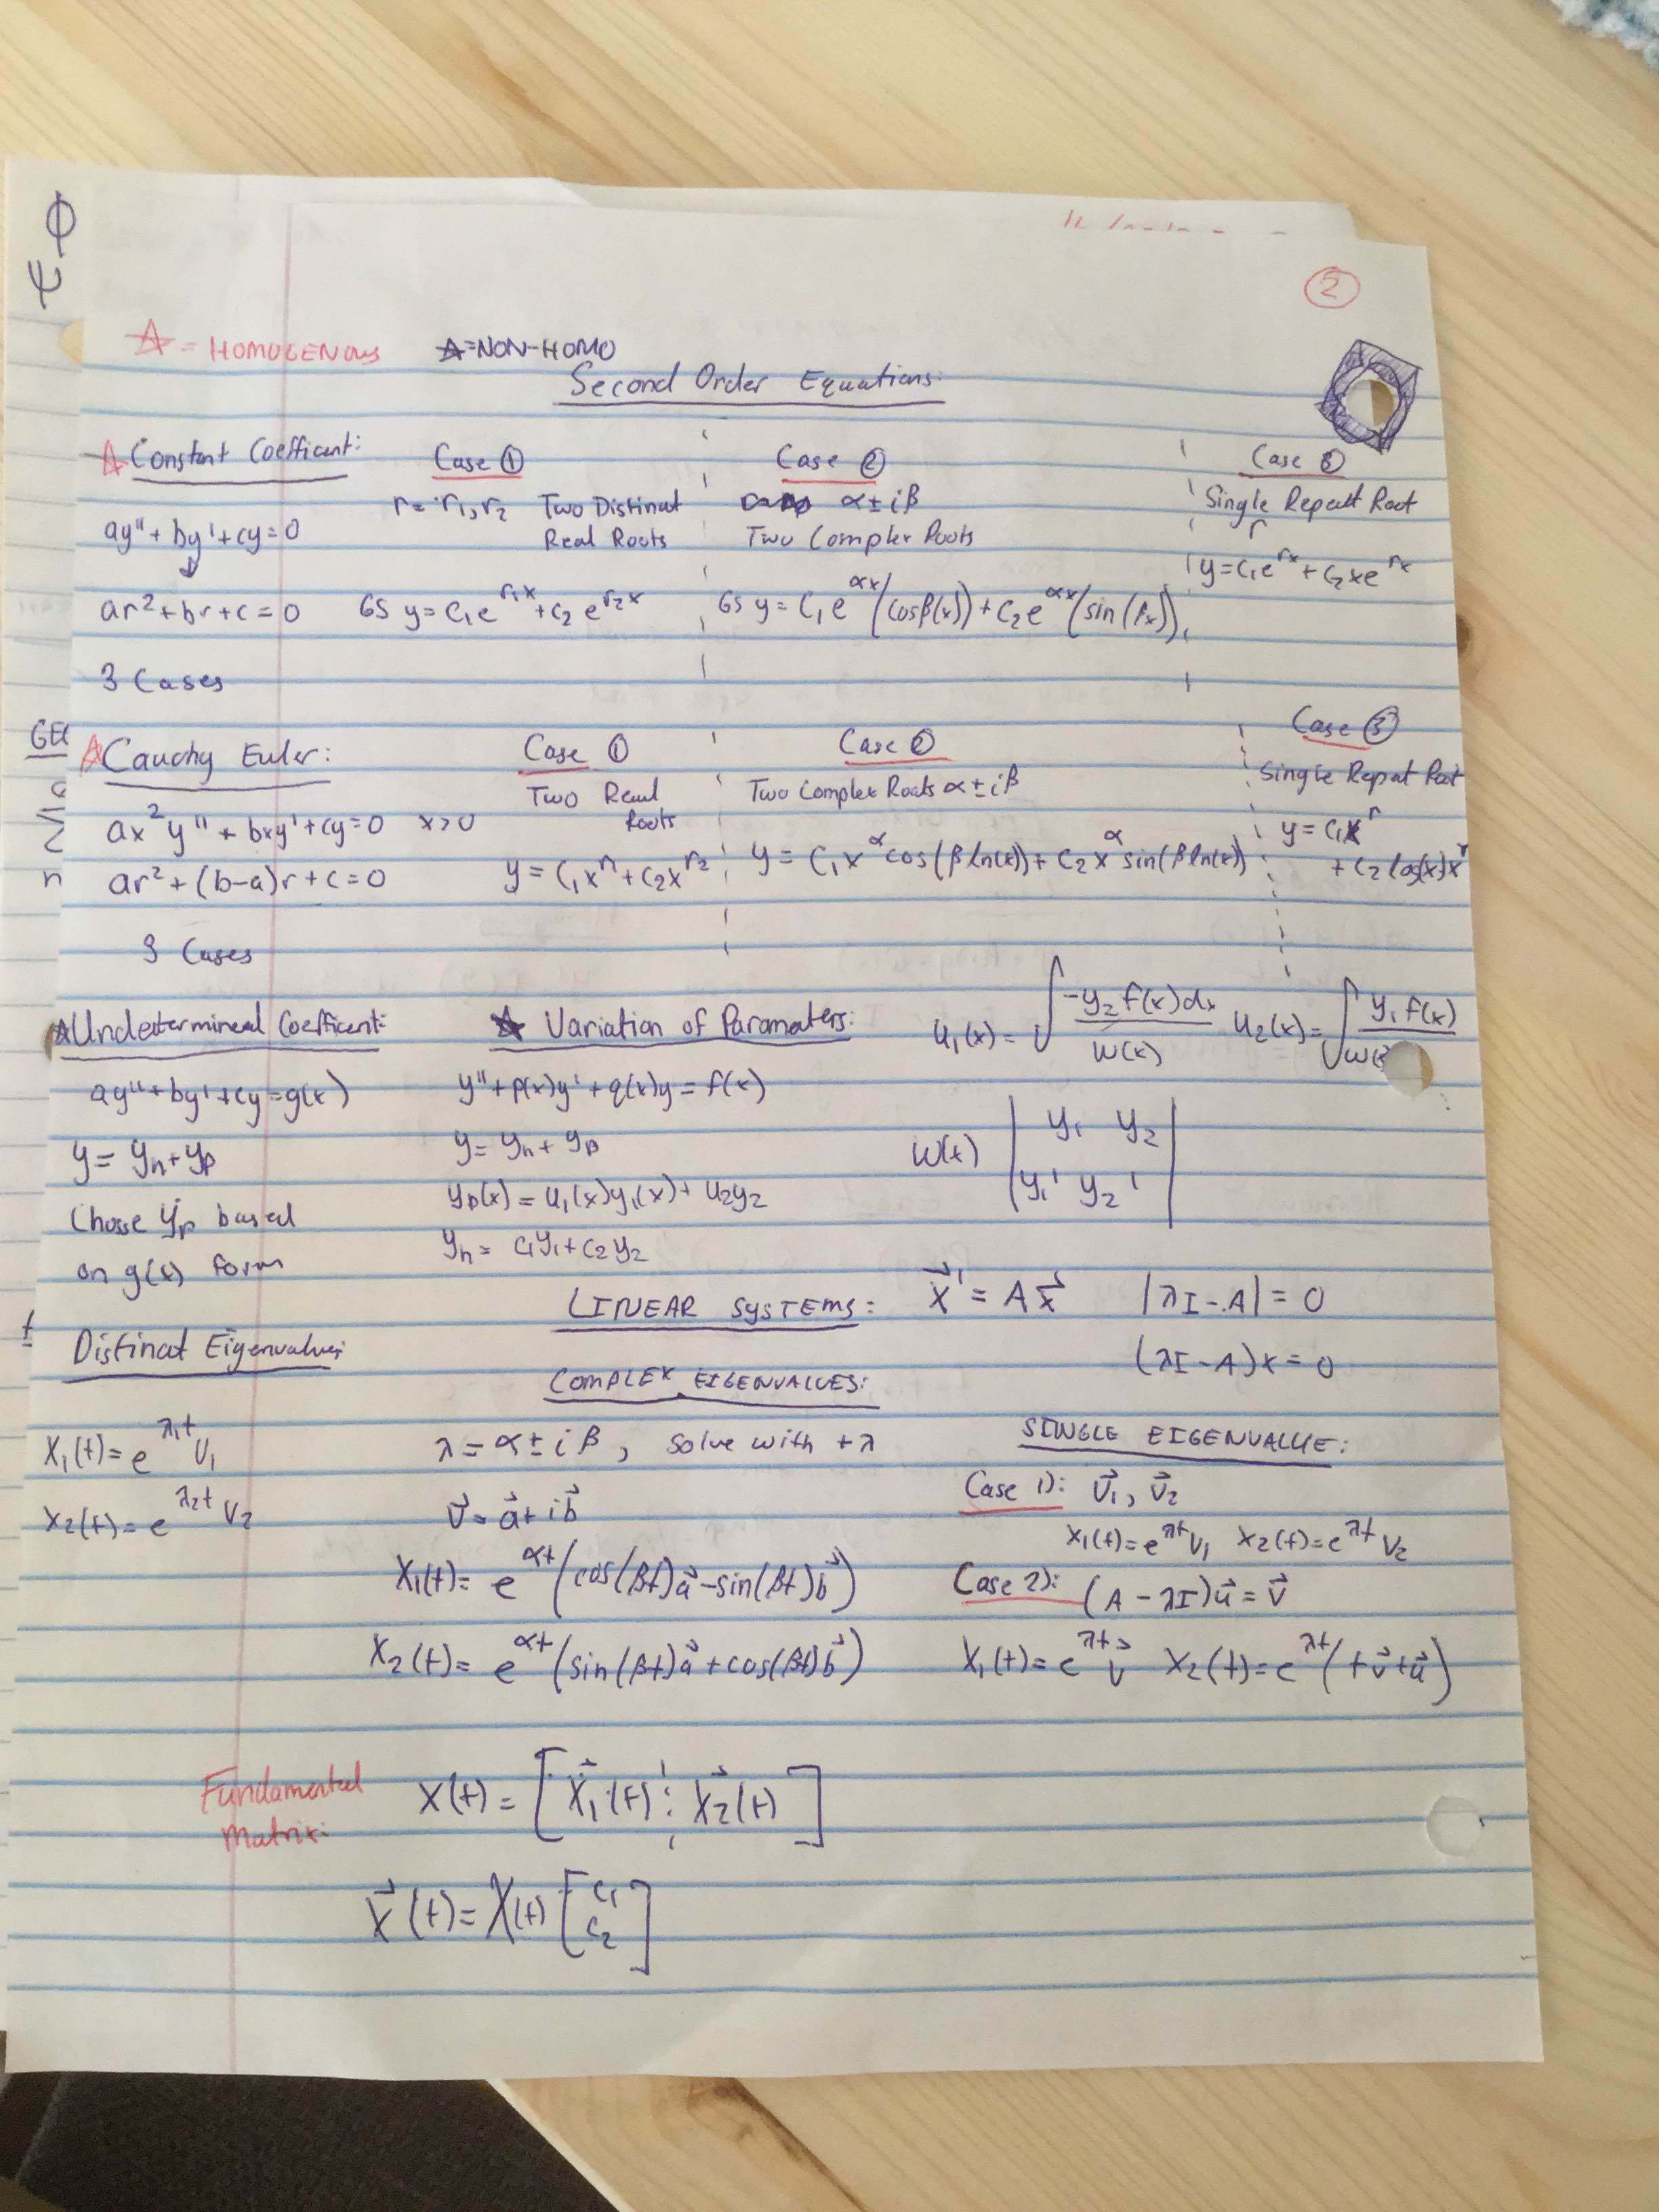 φ
ψ
②
☆ = HOMOGENOUS ☆=NON-HOMO
Second Order Equations:
☆ Constant Coefficent:
ay'' + by' + cy = 0
↓
ar² + br + c = 0
3 Cases
Case ①
r = r₁, r₂ Two Distinat
Real Roots
GS y = c₁e^(r₁x) + c₂e^(r₂x)
Case ②
α ± iβ
Two Complex Roots
GS y = c₁e^(αx)(cosβ(x)) + c₂e^(αx)(sin(βx))
Case ③
Single Repeat Root
r
y = c₁e^(rx) + c₂xe^(rx)
☆ Cauchy Euler:
ax²y'' + bxy' + cy = 0 x>0
ar² + (b-a)r + c = 0
3 Cases
Case ①
Two Real
Roots
y = c₁x^(r₁) + c₂x^(r₂)
Case ②
Two Complex Roots α ± iβ
y = c₁x^α cos(β ln(x)) + c₂x^α sin(β ln(x))
Case ③
Single Repeat Root
y = c₁x^r
+ c₂ log(x)x^r
☆ Undetermined Coefficent:
ay'' + by' + cy = g(x)
y = yₕ + yₚ
Chose yₚ based
on g(x) form
☆ Variation of Paramaters:
y'' + p(x)y' + q(x)y = f(x)
y = yₕ + yₚ
yₚ(x) = u₁(x)y₁(x) + u₂y₂
yₕ = c₁y₁ + c₂y₂
u₁(x) = ∫ -y₂ f(x)dx / W(x) u₂(x) = ∫ y₁ f(x) / W(
W(x) | y₁ y₂ |
| y₁' y₂' |
LINEAR SYSTEMS: x⃗' = Ax⃗ |λI - A| = 0
(λI - A)x = 0
Distinat Eigenvalues:
X₁(t) = e^(λ₁t) v₁
X₂(t) = e^(λ₂t) v₂
COMPLEX EIGENVALUES:
λ = α ± iβ, solve with +λ
v⃗ = a⃗ + ib⃗
X₁(t) = e^(αt)(cos(βt)a⃗ - sin(βt)b⃗)
X₂(t) = e^(αt)(sin(βt)a⃗ + cos(βt)b⃗)
SINGLE EIGENVALUE:
Case 1): v⃗₁, v⃗₂
X₁(t) = e^(λt) v₁ X₂(t) = e^(λt) v₂
Case 2): (A - λI)u⃗ = v⃗
X₁(t) = e^(λt) v⃗ X₂(t) = e^(λt)(tv⃗ + u⃗)
Fundamental
Matrix:
X(t) = [x⃗₁(t) ⋮ x⃗₂(t)]
x⃗(t) = X(t) [c₁
c₂]